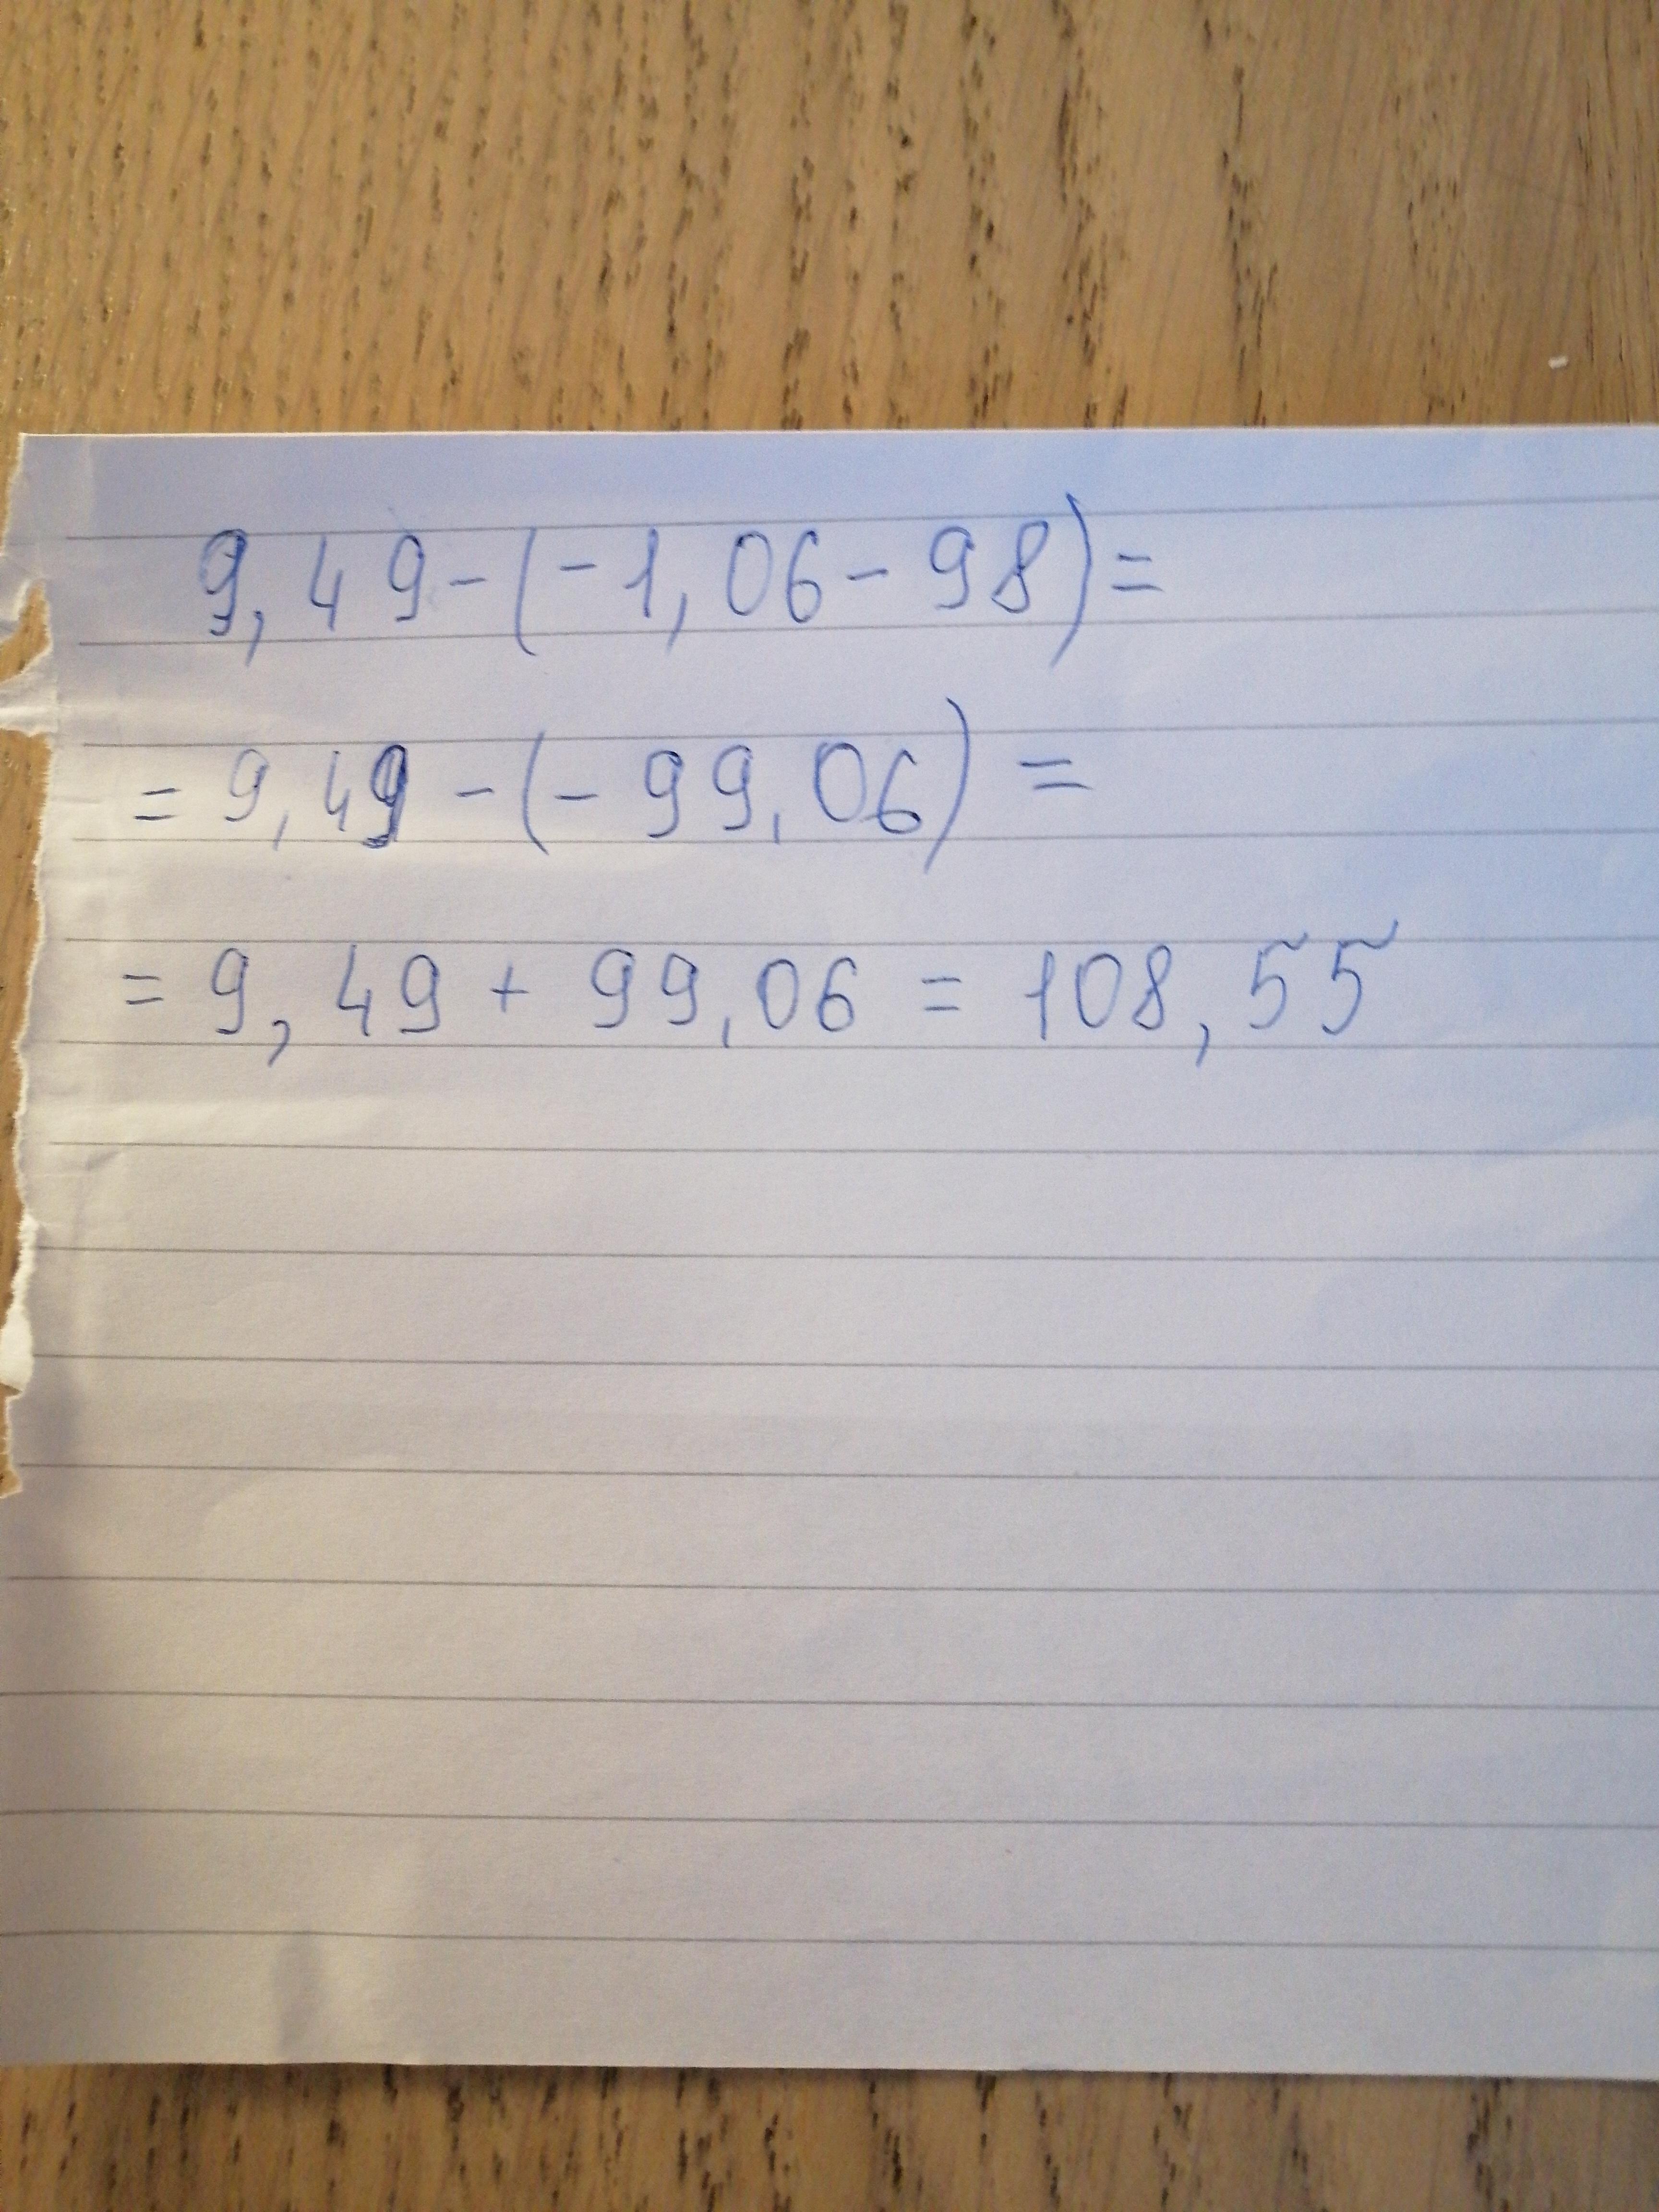 9,49-(-1,06-98)=
=9,49-(-99,06)=
=9,49+99,06=108,55